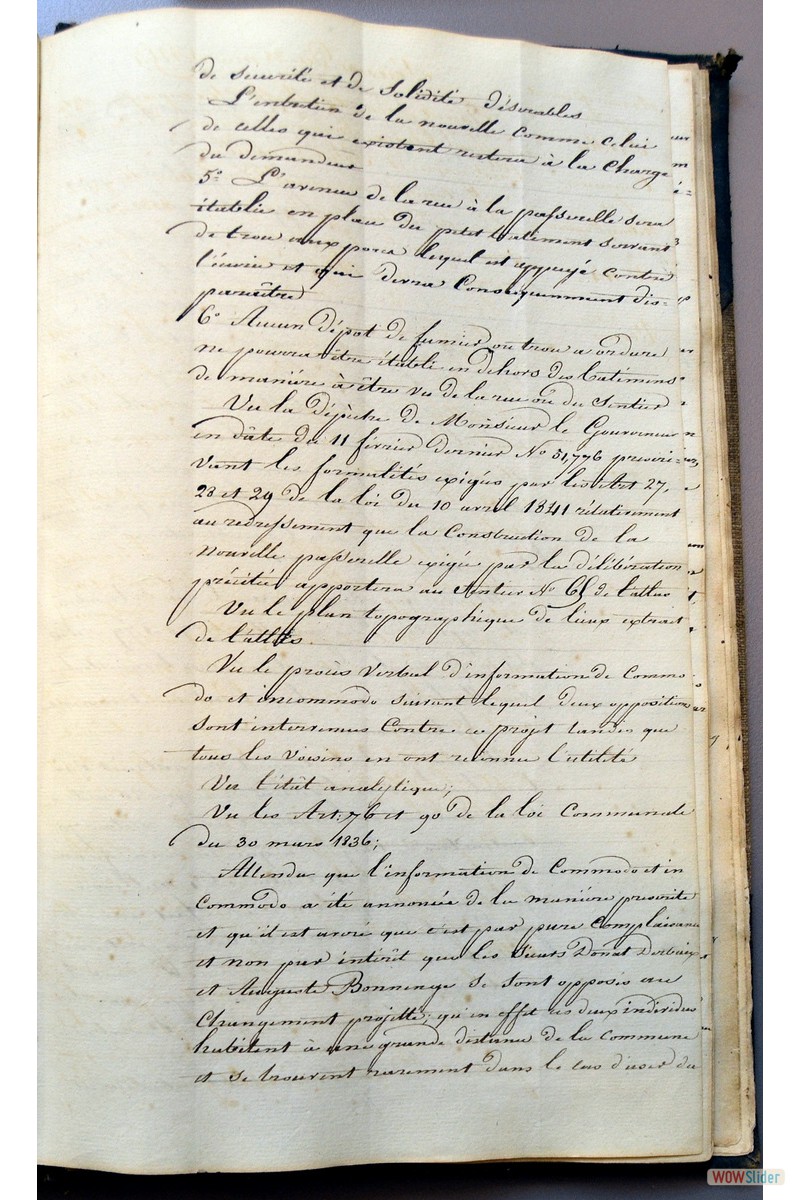 de sécurité et de solidité désirables
L'entretien de la nouvelle comme celui
de celles qui existent restera à la charge
du demandeur
5° L'avenue de la rue à la passerelle sera
établie en place du petit batiment servant
de trou aux porcs lequel est appuyé contre
l'écurie et qui devra Conséquemment dis=
paraître
6° Aucun dépot de fumier ou trou a ordure
ne pourra être établi en dehors des batimens
de manière à être vu de la rue où du Sentier
Vu la dépêche de Monsieur le Gouverneur
en dâte du 11 février dernier N° 51,776 prescri=
vant les formalités exigés par les Art 27,
28 et 29 de la loi du 10 avril 1841 rélativement
au redressement que la Construction de la
Nouvelle passerelle exigée par la délibération
précitée apportera au Sentier N° 65 de l'atlas
Vu le plan topographique de lieux extrait
de l'atlas.
Vu le procès verbal d'information de Commo-
do et incommodo suivant lequel deux oppositions
sont intervenus Contre ce projet tandis que
tous les voisins en ont reconnu l'utilité
Vu l'état analytique;
Vu les Art: 76 et 90 de la loi Communale
du 30 mars 1836;
Attendu que l'information de Commodo et in
Commodo a été annoncée de la manière prescrite
et qu'il est avéré que c'est par pure Complaisance
et non par intérêt que les Sieurs Donat
et Auguste Bonnenge se sont opposés au
Changement projetté; qu'en effet ces deux individus
habitent à une grande distance de la commune
et se trouvent rarement dans le cas d'user du
WOWSlider